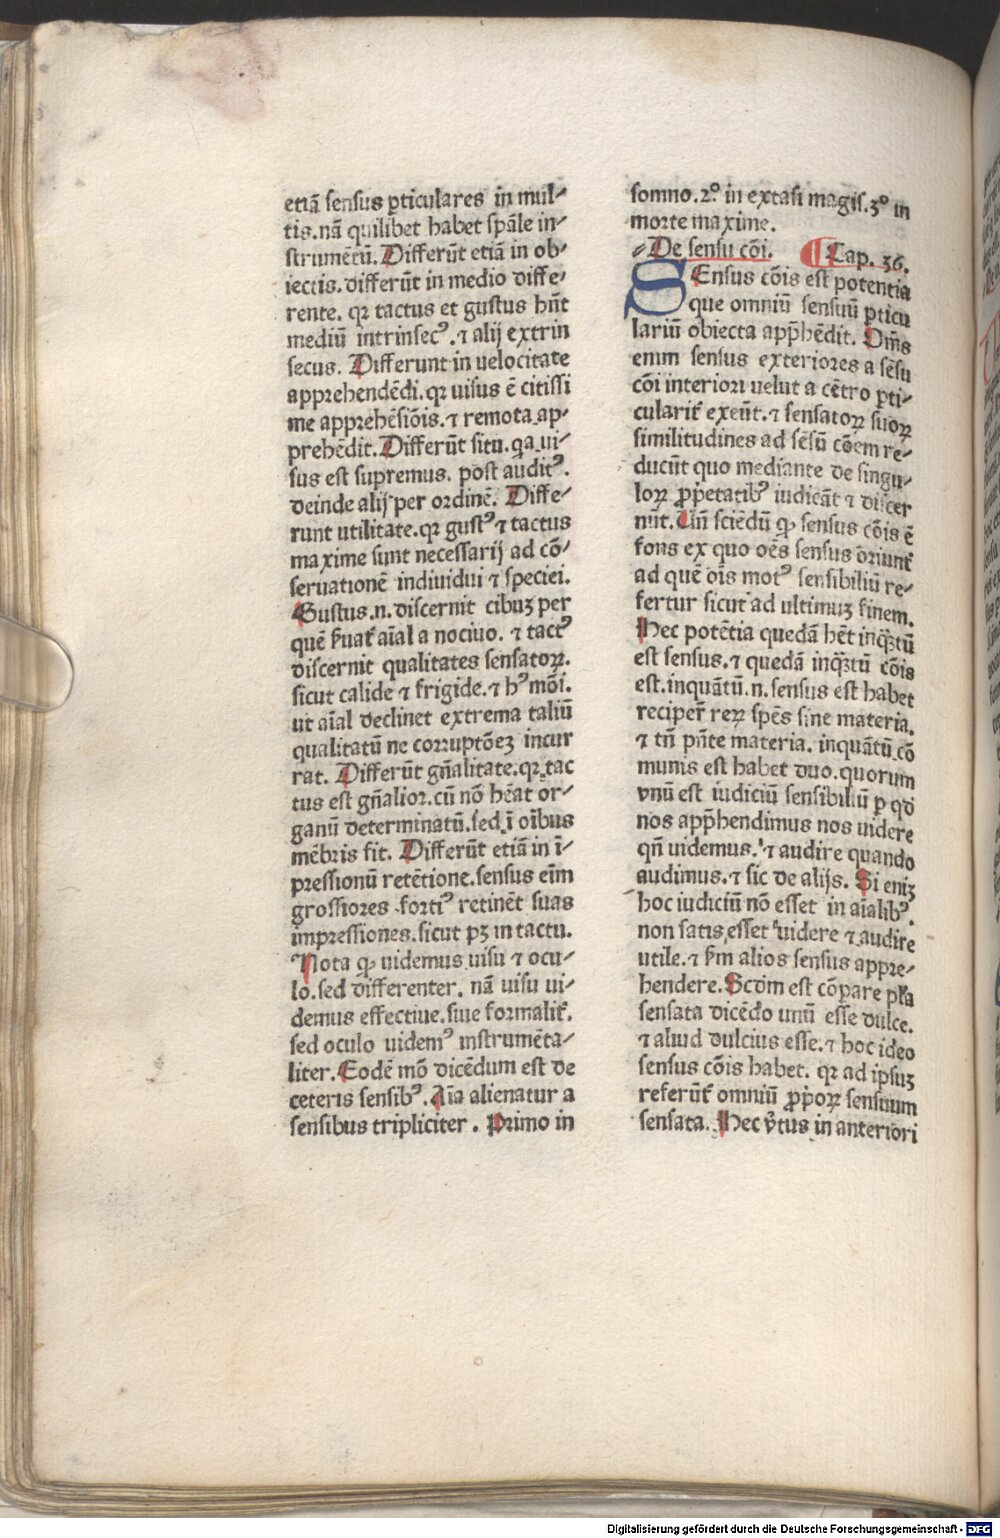 etiā sensus ꝑticulares in mul⸗
tis.nā quilibet habet spāle in⸗
strumētū. Differūt etiā in ob⸗
iectis.differūt in medio diffe⸗
rente. qꝛ tactus et gustus hn̄t
mediū intrinsecꝰ.⁊ alij extrin
secus. Differunt in uelocitate
apprehendēdi.qꝛ uisus ē citissi
me apprehēsiōis.⁊ remota ap⸗
prehēdit. Differūt situ.q̄a ui⸗
sus est supremus. post auditꝰ.
deinde alij per ordinē. Diffe⸗
runt utilitate.qꝛ gustꝰ ⁊ tactus
maxime sunt necessarij ad cō⸗
seruationē indiuidui ⁊ speciei.
Gustus.n.discernit cibuꝫ per
quē ẜuat᷑ aīal a nociuo. ⁊ tactꝰ
discernit qualitates sensatoꝝ.
sicut calide ⁊ frigide.⁊ hꝰ mōi.
ut aīal declinet extrema taliū
qualitatū ne corruptōeꝫ incur
rat. Differūt gn̄alitate.qꝛ tac
tus est gn̄alior.cū nō hēat or⸗
ganū determinatū.sed ī oībus
mēbris fit. Differūt etiā in ī⸗
pressionū retētione.sensus eīm
grossiores fortiꝰ retinēt suas
impressiones.sicut pꝫ in tactu.
Nota ꝙ uidemus uisu ⁊ ocu⸗
lo.sed differenter. nā uisu ui⸗
demus effectiue.siue formalit᷑.
sed oculo uidemꝰ instrumēta⸗
liter. Eodē mō dicēdum est de
ceteris sensibꝰ. Aīa alienatur a
sensibus tripliciter. Primo in
somno.2º in extasi magis.3º in
morte maxime.
⸗De sensu cōi. Cap. 36.
SEnsus cōis est potentia
que omniū sensuū ꝑticu
lariū obiecta app̄hēdit. Oīms
enim sensus exteriores a sēsu
cōi interiori uelut a cētro ꝑti⸗
cularit᷑ exeūt.⁊ sensatoꝝ suoꝝ
similitudines ad sēsū cōem re⸗
ducūt quo mediante de singu⸗
loꝝ ꝓp̄etatibꝰ iudicāt ⁊ discer
nūt. Vn̄ sciēdū ꝙ sensus cōis ē
fons ex quo oēs sensus oriunt᷑
ad quē oīs motꝰ sensibiliū re⸗
fertur sicut ad ultimuꝫ finem.
Hec potētia quedā hēt inq̄ꝫtū
est sensus.⁊ quedā inq̄ꝫtū cōis
est.inquātū.n.sensus est habet
reciper̄ reꝝ spēs sine materia.
⁊ tn̄ pn̄te materia. inquātū cō
munis est habet duo.quorum
vnū est iudiciū sensibiliū ꝑ qd̄
nos app̄hendimus nos uidere
qn̄ uidemus.⁊ audire quando
audimus.⁊ sic de alijs. Si eniꝫ
hoc iudiciū nō esset in aīalibꝰ.
non satis esset uidere ⁊ audire
utile.⁊ ẜm alios sensus appre⸗
hendere. Scd̄m est cōparare pl̄a
sensata dicēdo unū esse dulce.
⁊ aliud dulcius esse.⁊ hoc ideo
sensus cōis habet. qꝛ ad ipsuꝫ
referūt᷑ omniū ꝓp̄oꝝ sensuum
sensata. Hec v̄tus in anteriori
Digitalisierung gefördert durch die Deutsche Forschungsgemeinschaft - DFG